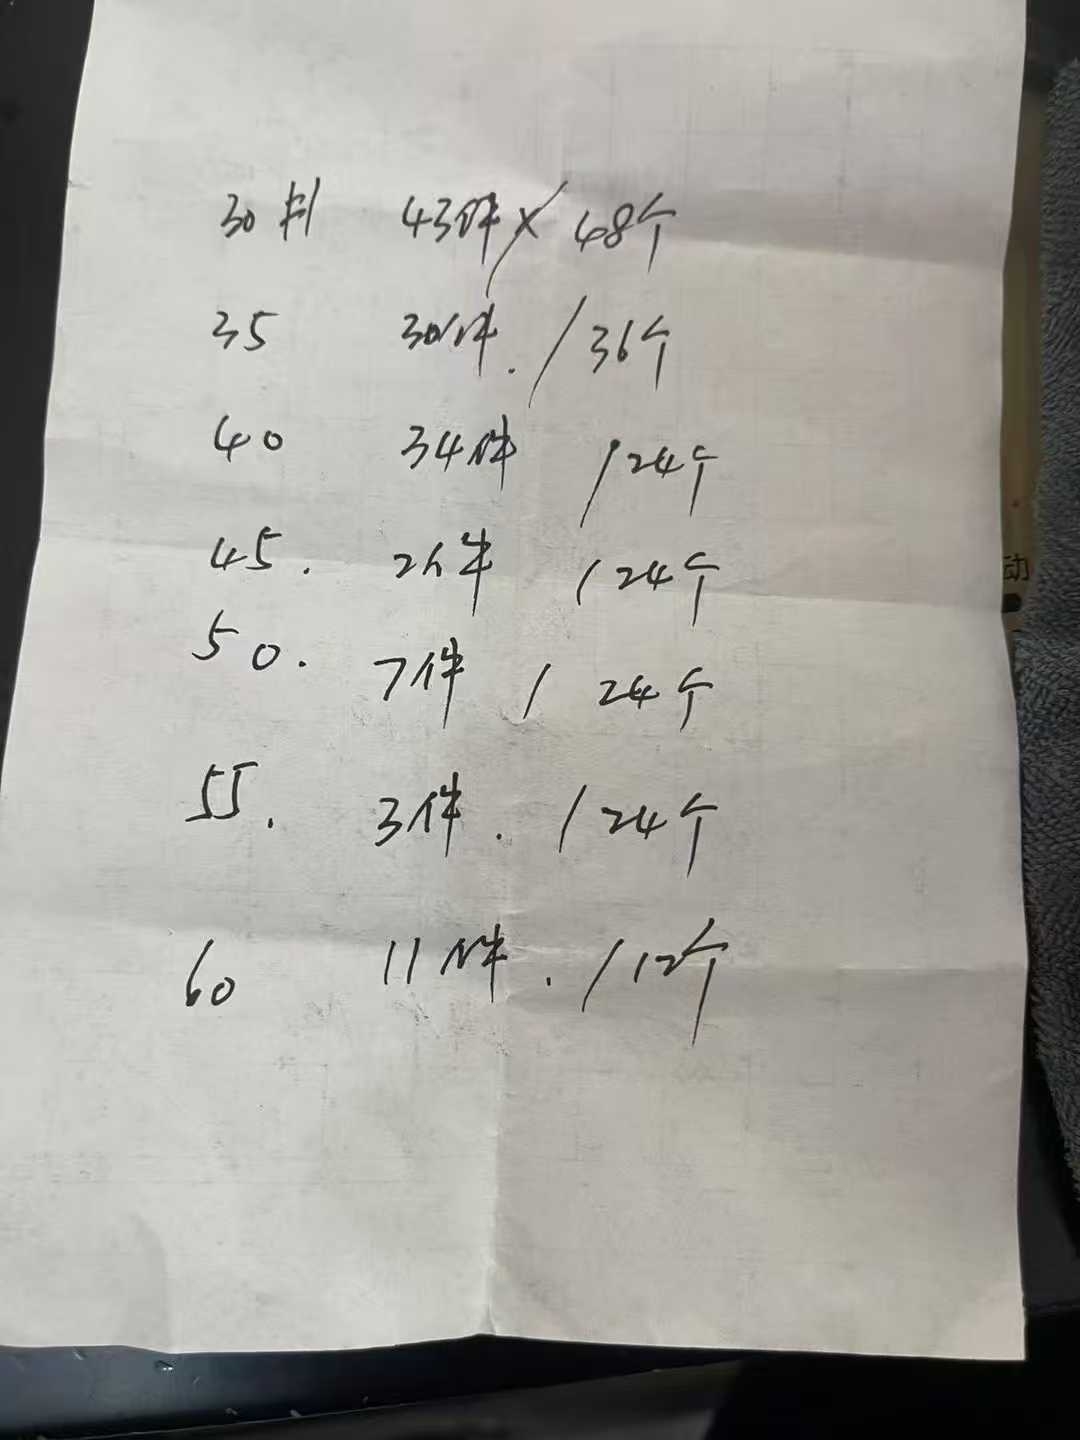 30料 43件 × 48个
35 30件. / 36个
40 34件 / 24个
45. 2件 / 24个
50. 7件 / 24个
55. 3件. / 24个
60 11件. / 12个
动